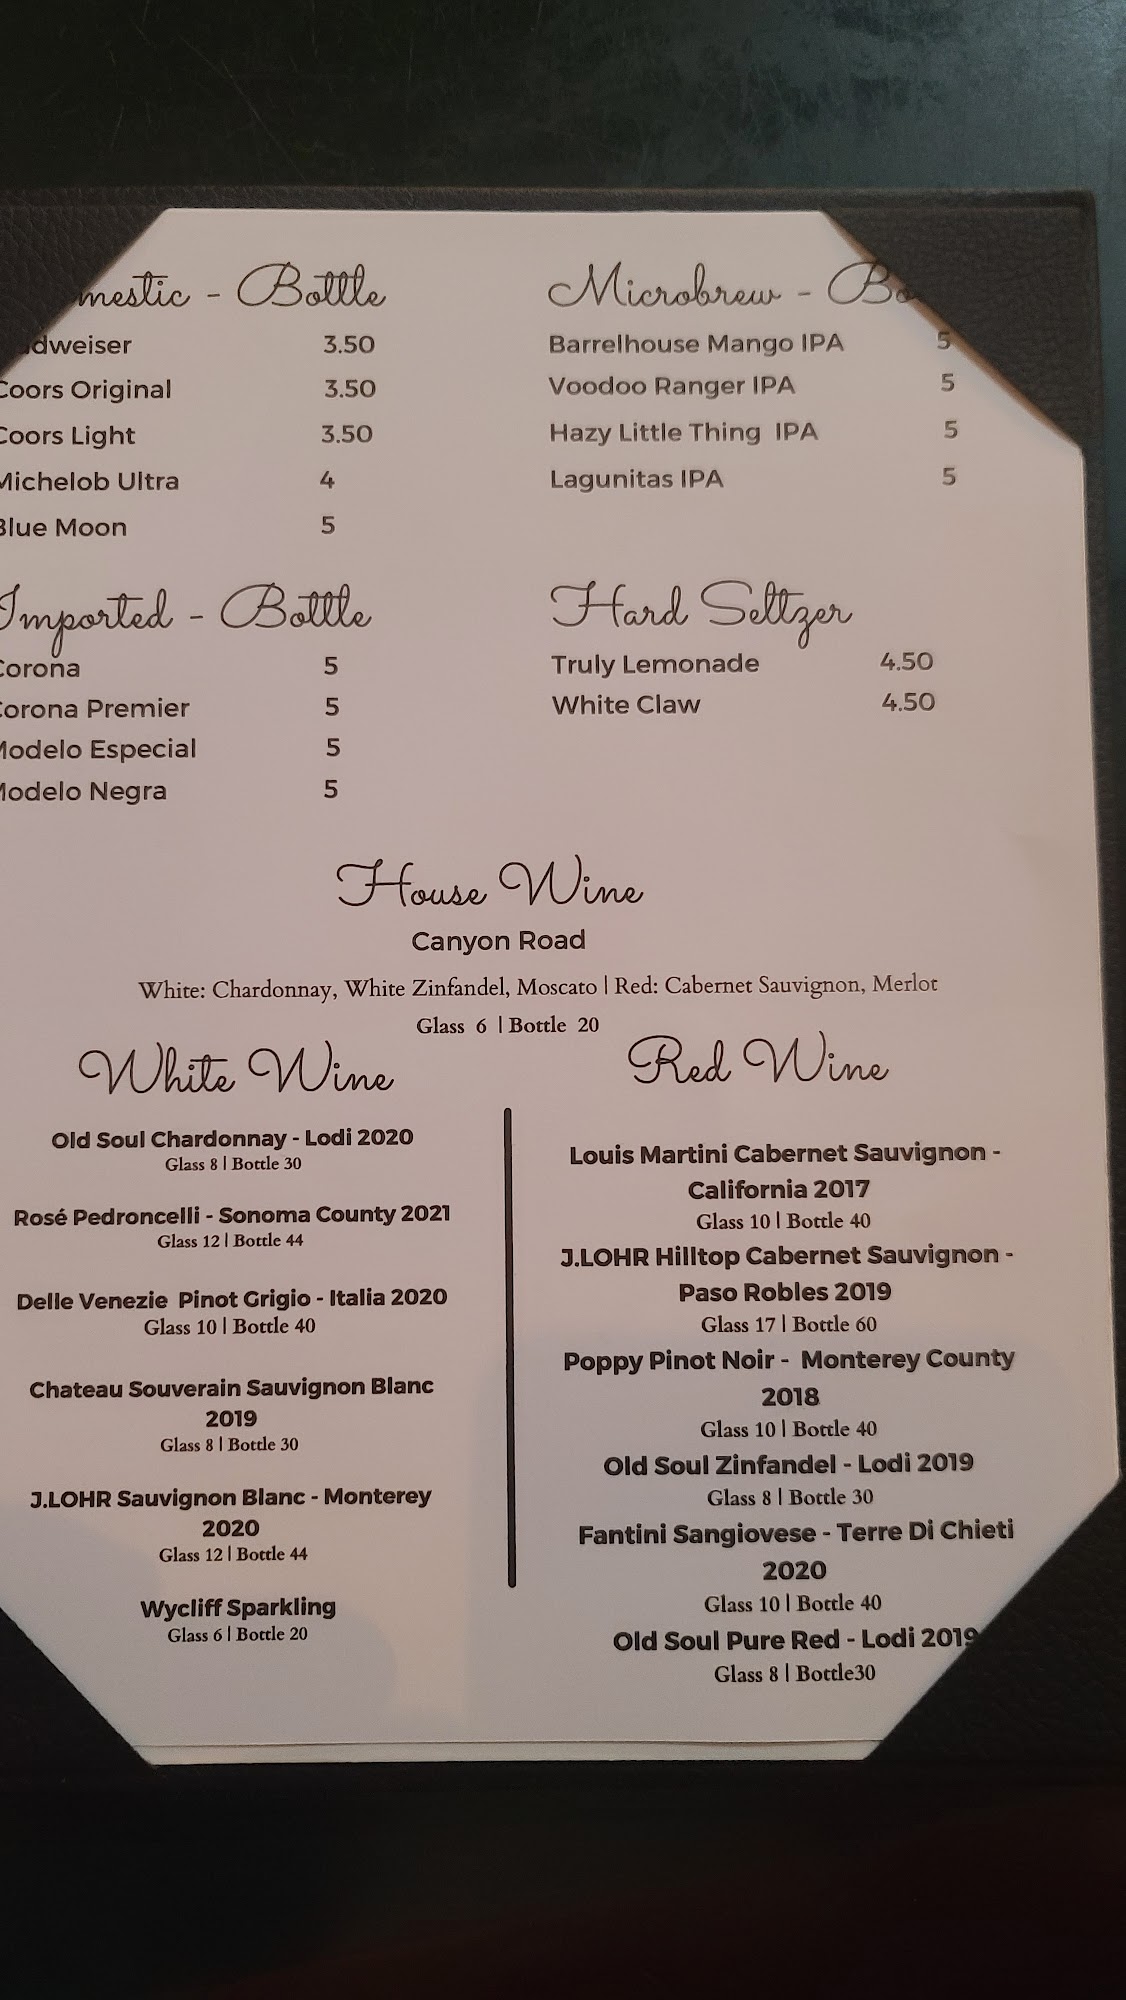 mestic - Bottle
dweiser 3.50
Coors Original 3.50
Coors Light 3.50
Michelob Ultra 4
Blue Moon 5
Microbrew - Bo
Barrelhouse Mango IPA 5
Voodoo Ranger IPA 5
Hazy Little Thing IPA 5
Lagunitas IPA 5
Imported - Bottle
Corona 5
Corona Premier 5
Modelo Especial 5
Modelo Negra 5
Hard Seltzer
Truly Lemonade 4.50
White Claw 4.50
House Wine
Canyon Road
White: Chardonnay, White Zinfandel, Moscato | Red: Cabernet Sauvignon, Merlot
Glass 6 | Bottle 20
White Wine
Old Soul Chardonnay - Lodi 2020
Glass 8 | Bottle 30
Rosé Pedroncelli - Sonoma County 2021
Glass 12 | Bottle 44
Delle Venezie Pinot Grigio - Italia 2020
Glass 10 | Bottle 40
Chateau Souverain Sauvignon Blanc
2019
Glass 8 | Bottle 30
J.LOHR Sauvignon Blanc - Monterey
2020
Glass 12 | Bottle 44
Wycliff Sparkling
Glass 6 | Bottle 20
Red Wine
Louis Martini Cabernet Sauvignon -
California 2017
Glass 10 | Bottle 40
J.LOHR Hilltop Cabernet Sauvignon -
Paso Robles 2019
Glass 17 | Bottle 60
Poppy Pinot Noir - Monterey County
2018
Glass 10 | Bottle 40
Old Soul Zinfandel - Lodi 2019
Glass 8 | Bottle 30
Fantini Sangiovese - Terre Di Chieti
2020
Glass 10 | Bottle 40
Old Soul Pure Red - Lodi 2019
Glass 8 | Bottle30